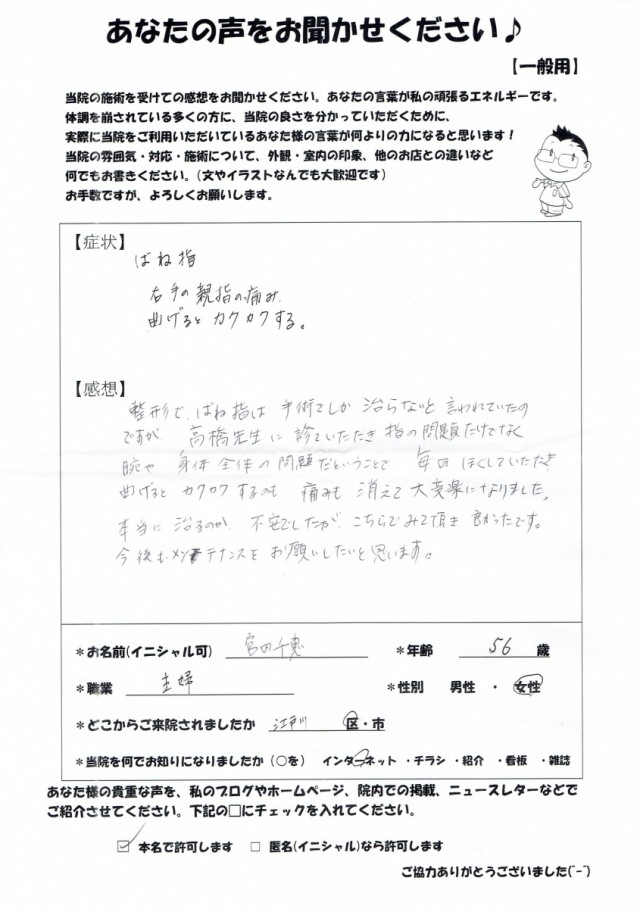 あなたの声をお聞かせください♪
【一般用】
当院の施術を受けての感想をお聞かせください。あなたの言葉が私の頑張るエネルギーです。
体調を崩されている多くの方に、当院の良さを分かっていただくために、
実際に当院をご利用いただいているあなた様の言葉が何よりの力になると思います！
当院の雰囲気・対応・施術について、外観・室内の印象、他のお店との違いなど
何でもお書きください。（文やイラストなんでも大歓迎です）
お手数ですが、よろしくお願いします。
【症状】
ばね指
右手の親指の痛み
曲げると カクカクする。
【感想】
整形で、ばね指は 手術でしか 治らないと 言われていたの
ですが 高橋先生に 診ていただき 指の問題だけでなく
腕や 身体全体の問題だということで 毎回 ほぐしていただき
曲げると カクカクするのも 痛みも 消えて 大変楽になりました。
本当に 治るのか 不安でしたが、こちらでみて頂き 良かったです。
今後も メンテナンスを お願いしたいと思います。
＊お名前(イニシャル可) 宮田千恵 ＊年齢 56 歳
＊職業 主婦 ＊性別 男性 ・ 女性
＊どこからご来院されましたか 江戸川 区・市
＊当院を何でお知りになりましたか（○を） インターネット ・チラシ ・紹介 ・看板 ・雑誌
あなた様の貴重な声を、私のブログやホームページ、院内での掲載、ニュースレターなどで
ご紹介させてください。下記の□にチェックを入れてください。
☑ 本名で許可します □ 匿名(イニシャル)なら許可します
ご協力ありがとうございました(^-^)